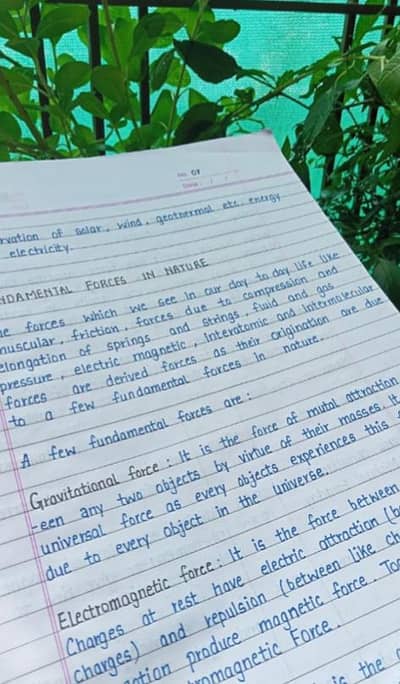 No. 07
Date: / /
rvation of Solar, wind, geothermal etc. energy
electricity.
NDAMENTAL FORCES IN NATURE
e forces which we see in our day to day life like
muscular, friction, forces due to compression and
elongation of springs and strings, fluid and gas
pressure, electric magnetic, interatomic and intermolecular
forces are derived forces as their origination are due
to a few fundamental forces in nature.
A few fundamental forces are:
Gravitational force: It is the force of mutal attraction
-een any two objects by virtue of their masses. It
universal force as every objects experiences this
due to every object in the universe.
Electromagnetic force: It is the force between
Charges at rest have electric attraction (be
charges) and repulsion (between like ch
ction produce magnetic force. Tog
romagnetic Force.
is the